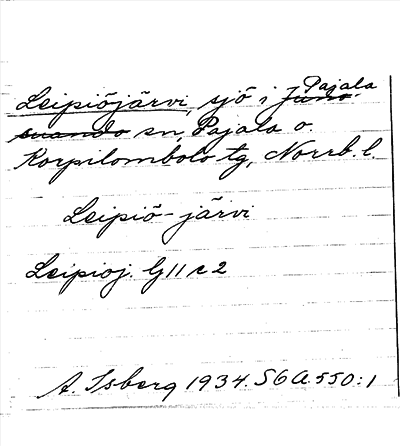 Leipiöjärvi, sjö i Juno- Pajala
suando sn, Pajala o.
Korpilombolo tg, Norrb. l.
Leipiö-järvi
Leipioj. G 11 c 2
A. Isberg 1934. SGA. 550:1